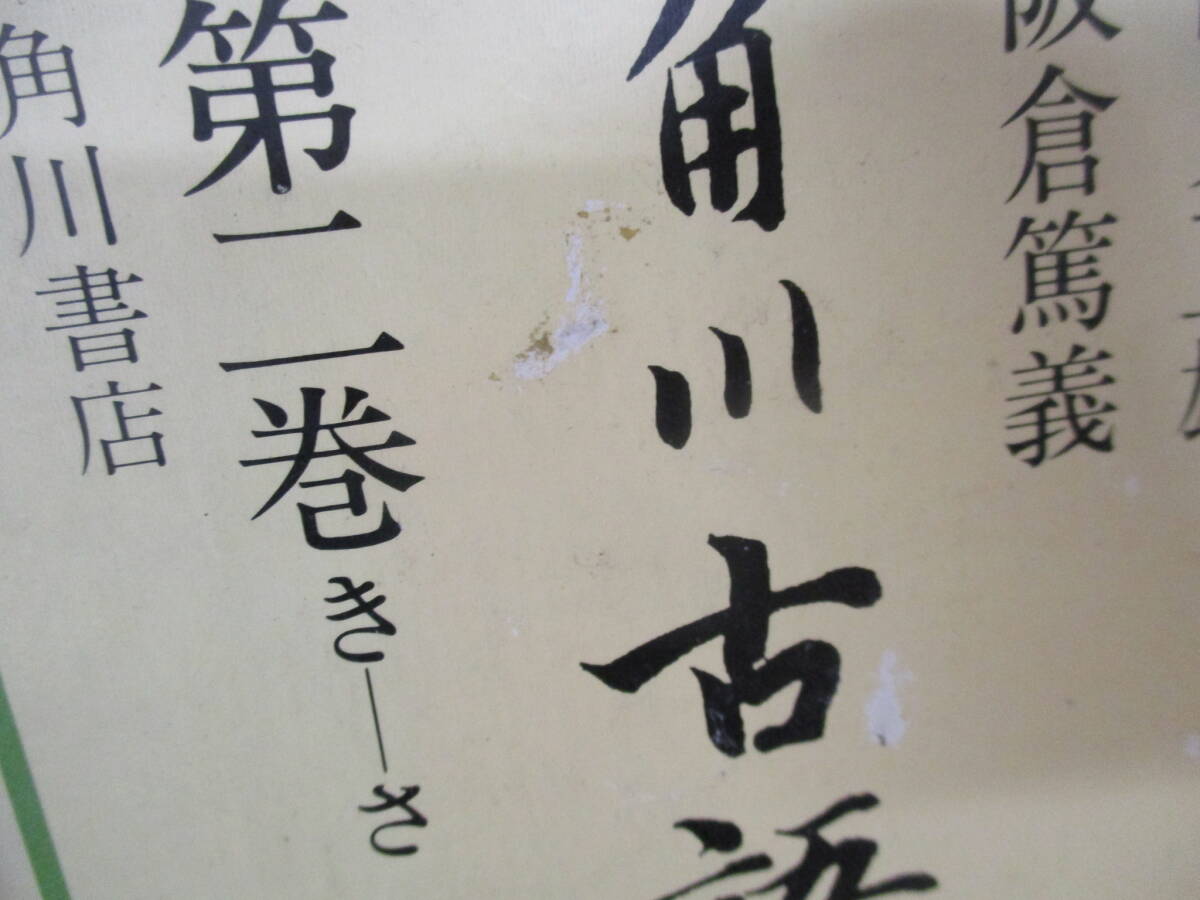 阪倉篤義
角川古語
第二巻き—さ
角川書店